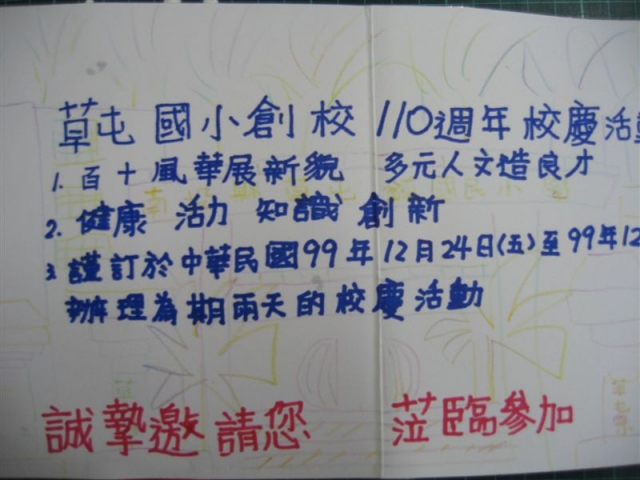 草屯國小創校110週年校慶活動
1. 百十風華展新貌 多元人文造良才
2. 健康 活力 知識 創新
3. 謹訂於中華民國99年12月24日(五)至99年12
辦理為期兩天的校慶活動
誠摯邀請您 蒞臨參加